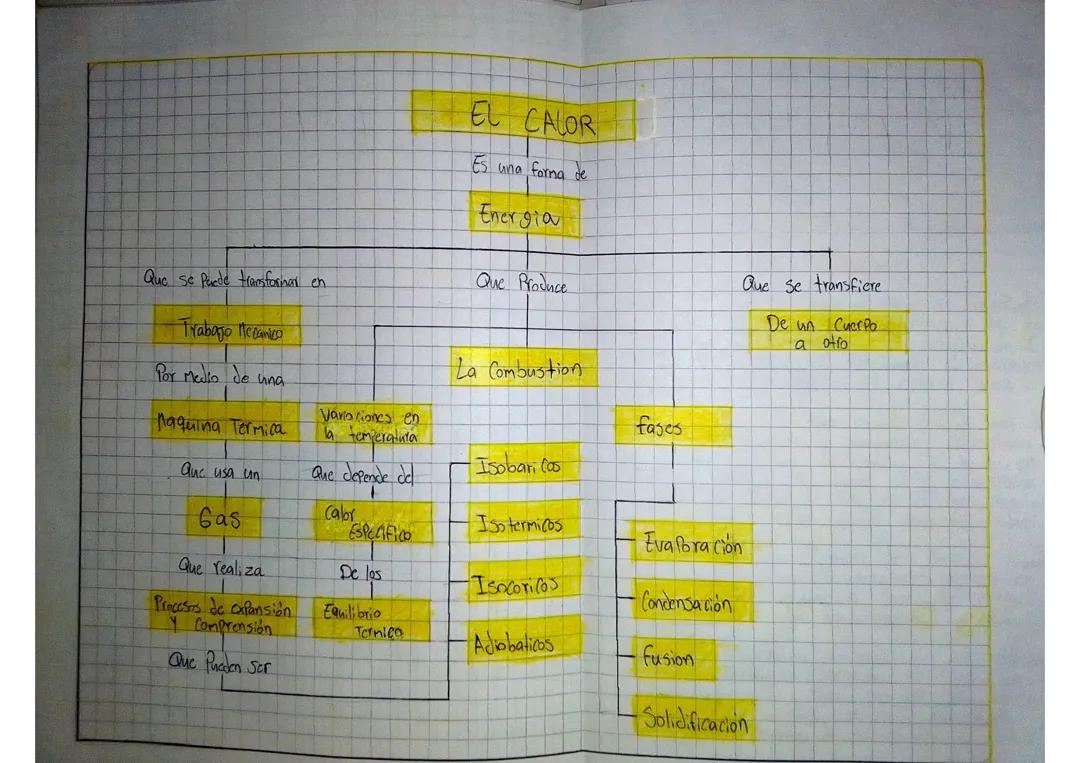 EL CALOR
Es una forma de
Energia
Que se Puede transformar en
Trabajo Mecanico
Por medio de una
Maquina Termica
Que usa un
Gas
Que realiza
Procesos de expansión
y Comprensión
Que Pueden ser
Isobaricos
Isotermicos
Isocoricos
Adiabaticos
Que Produce
Variaciones en
la temperatura
Que depende del
Calor
Especifico
De los
Equilibrio
Termico
La Combustion
fases
Evaporación
Condensación
fusion
Solidificación
Que se transfiere
De un Cuerpo
a otro